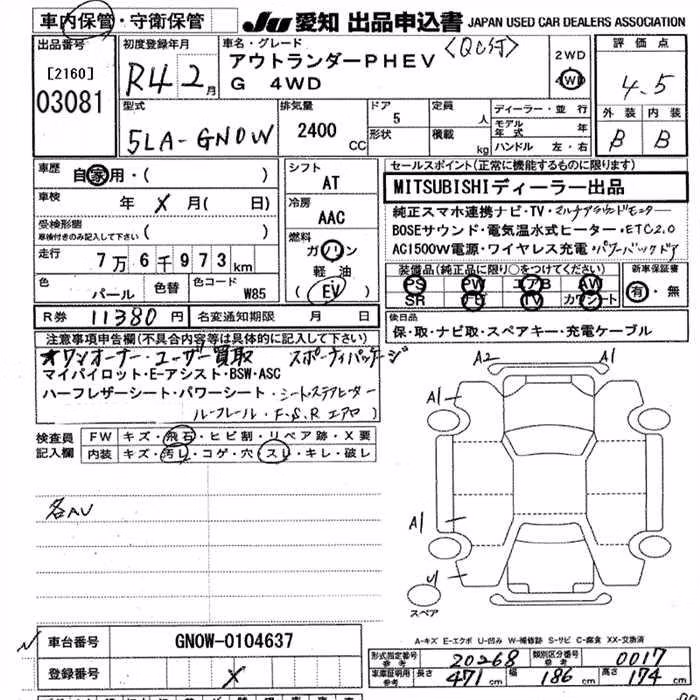 車内保管・守衛保管 JU 愛知 出品申込書 JAPAN USED CAR DEALERS ASSOCIATION
出品番号 [2160] 03081
初度登録年月 R4 2月
車名・グレード アウトランダーPHEV <QC付>
G 4WD
2WD 4WD
評価点 4.5
外装 内装
B B
型式 5LA-GN0W
排気量 2400 CC
ドア 5
形状
定員 人
積載 kg
ディーラー・並行
モデル年式 年
ハンドル 左・右
車歴 自家用・( )
車検 年 X 月( 日)
受検形態
車検付きのみ記入して下さい ( )
走行 7万6千973km
色 パール 色替 色コード W85
シフト AT
冷房 AAC
燃料 ガソリン
軽油
( EV )
R券 11380円 名変通知期限 月 日
セールスポイント(正常に機能するものに限ります)
MITSUBISHIディーラー出品
純正スマホ連携ナビ・TV・マルチアラウンドモニター
BOSEサウンド・電気温水式ヒーター・ETC2.0
AC1500W電源・ワイヤレス充電・パワーバックドア
装備品(純正品に限り○をつけてください) 新車保証書
PS PW エアB AW 有・無
SR ナビ TV カワシート
後日品
保・取・ナビ取・スペアキー・充電ケーブル
注意事項申告欄(不具合内容等は具体的に記入して下さい)
ワンオーナー・ユーザー買取 スポーティパッケージ
マイパイロット・E-アシスト・BSW・ASC
ハーフレザーシート・パワーシート・シート・ステアヒーター
ルーフレール・F.S.Rエアロ
検査員記入欄 FW キズ・飛石・ヒビ割・リペア跡・X要
内装 キズ・汚レ・コゲ・穴・スレ・キレ・破レ
各AU
A2 A1
A1
A1
スペア
A-キズ E-エクボ U-凹み W-補修跡 S-サビ C-腐食 XX-交換済
車台番号 GN0W-0104637
登録番号 X
形式指定番号 参考 20268 類別区分番号 参考 0017
車庫証明用 参考 長さ 471cm 幅 186cm 高さ 174cm